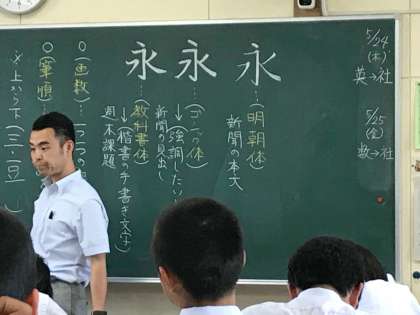 5/24
(木)
英→社
5/25
(金)
数→社
永…(明朝体)
新聞の本文
永…(ゴシック体)
→強調したい
新聞の見出し
永…(教科書体)
→楷書の手書き文字)
週本課題
○(画数)…
○(筆順)…
※上から下